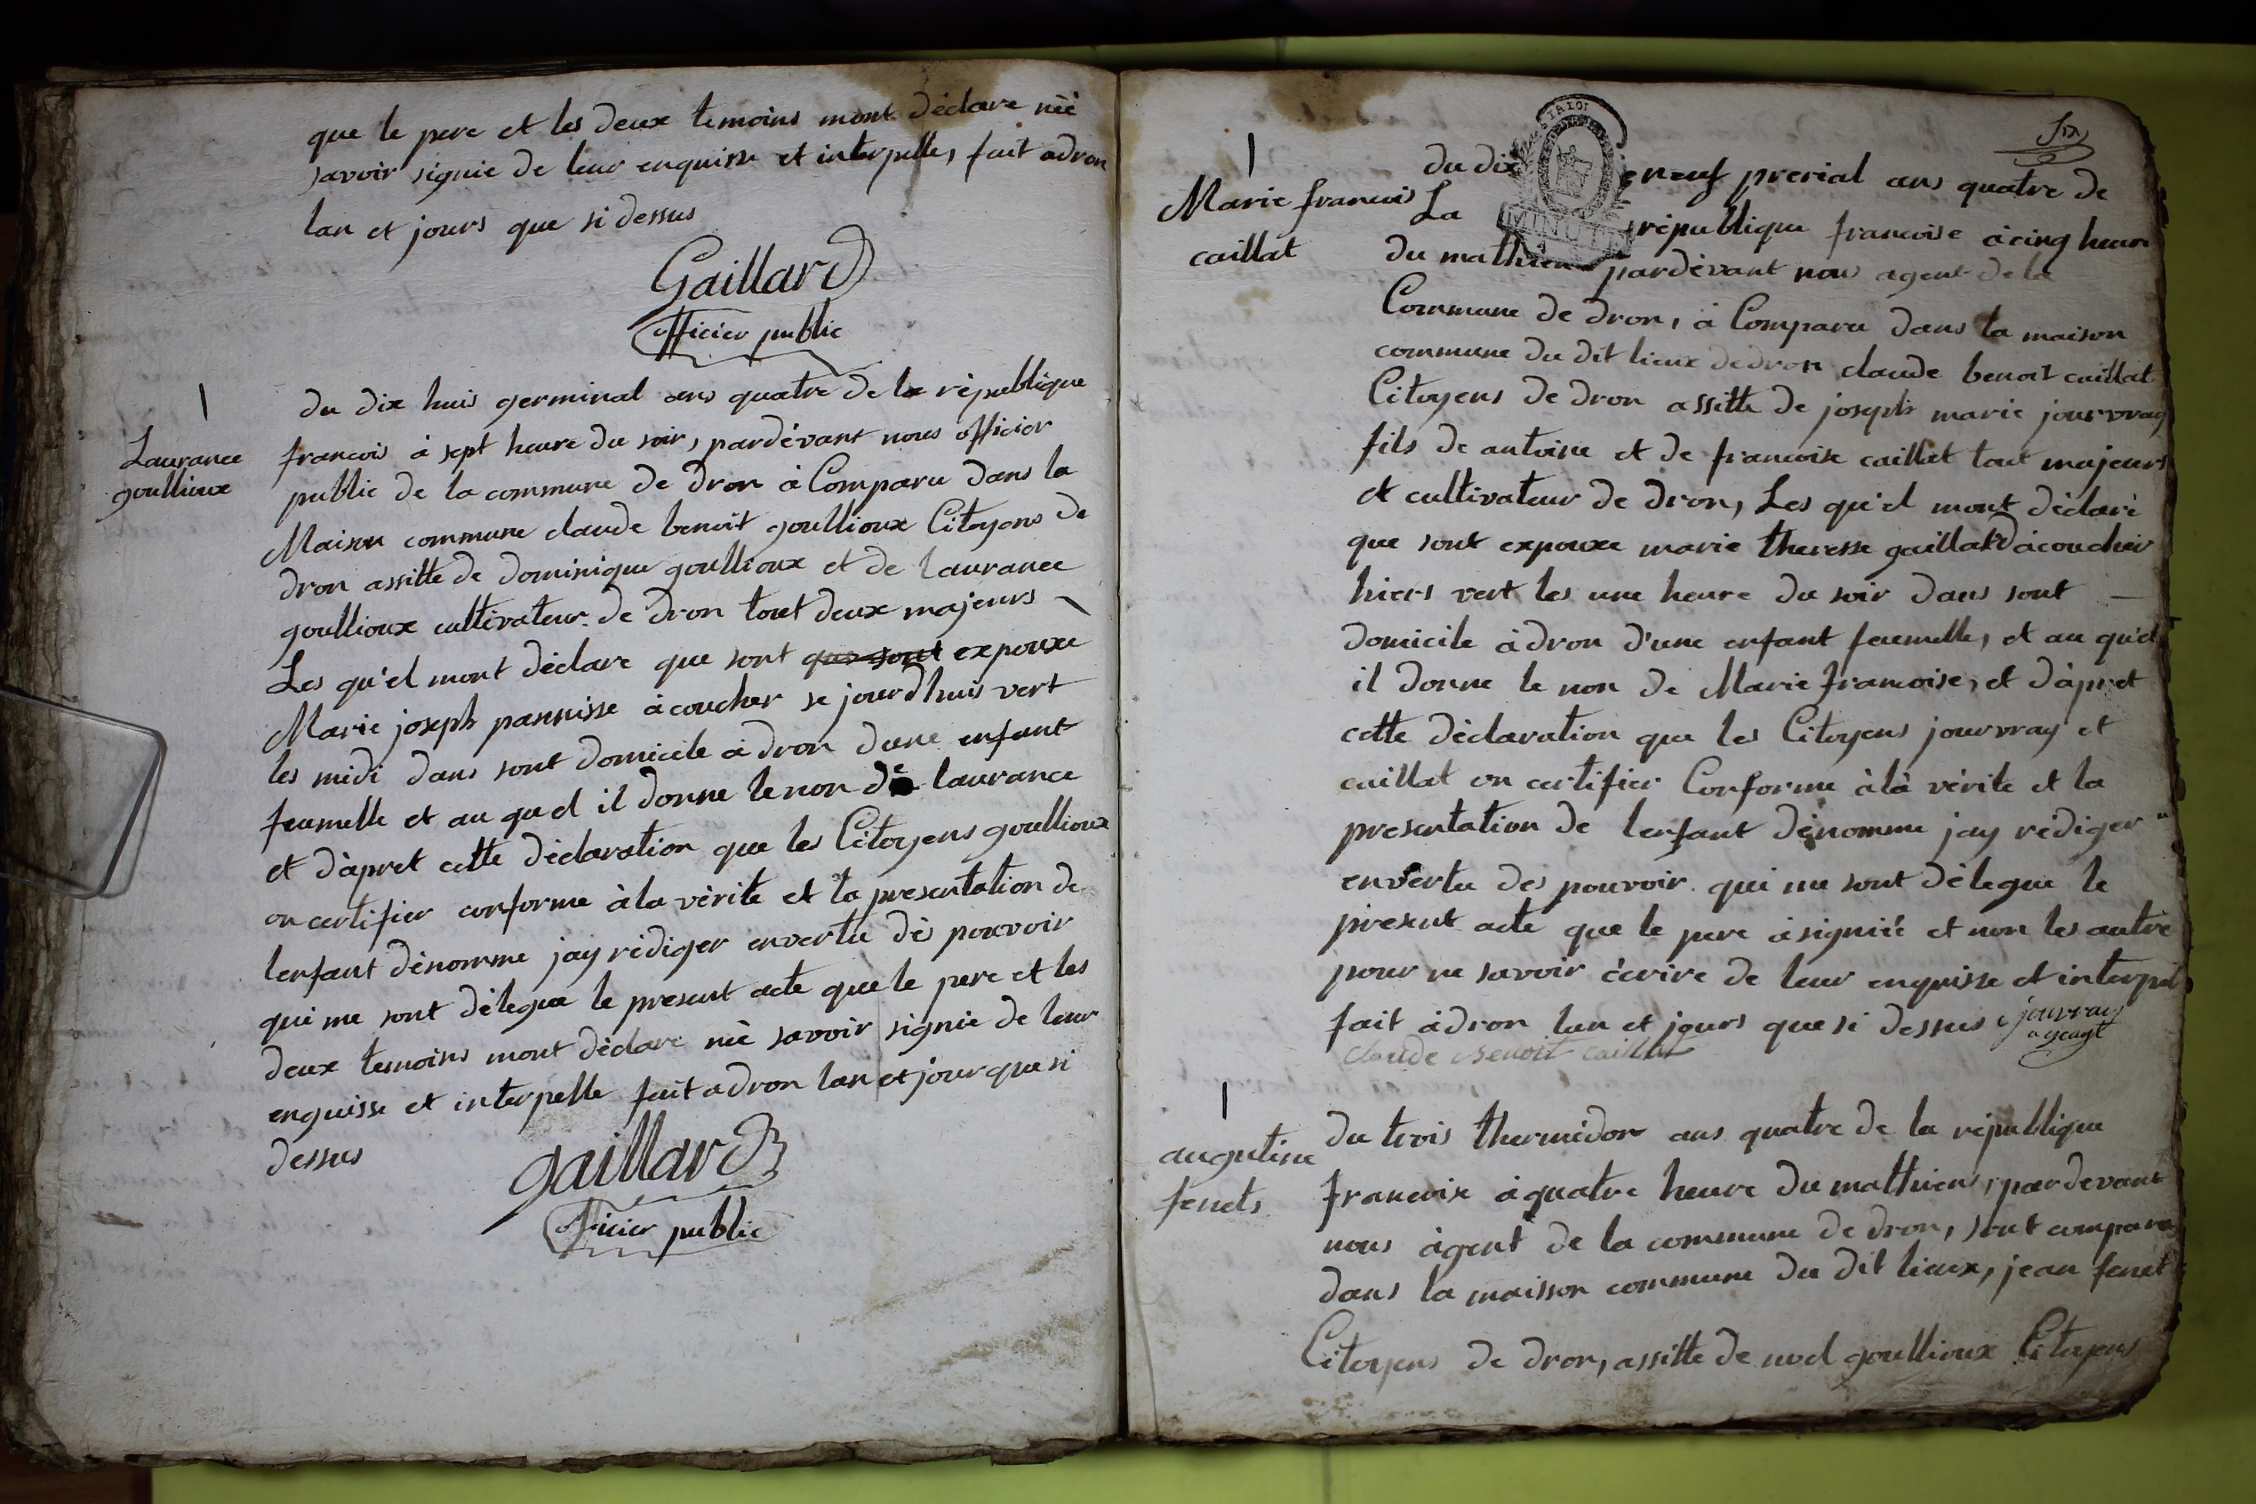 que le pere et les deux temoins mont déclare nè
savoir signie de leur enquisse et interpelle, fait adron
lan et jours que si dessus
Gaillard
officier public
Laurance
goullioux
du dix huis germinal ans quatre de la république
francois à sept heure du soir, pardévant nous officier
public de la commune de dron à Comparu dans la
Maison commune claude benoit goullioux Citoyens de
dron assitte de dominique goullioux et de laurance
goullioux cultivateur de dron tout deux majeurs
Les qu'el mont déclare que sont que sont expouxe
Marie joseph pannisse àcoucher se jourdhuis vert
les midi dans sont domicile à dron dune enfant
feumelle et au quel il donne le non de laurance
et dàpret cette déclaration que les Citoyens goullioux
on certifier conforme à la vérite et la presentation de
lenfant dénomme jay rédiger envertu dès pouvoir
qui me sont délegue le present acte que le pere et les
deux temoins mont déclare nè savoir signie de leur
enquisse et interpelle fait adron lan et jour que si
dessus
gaillard
officier public
Six
Marie francois
caillat
du dix neuf prerial ans quatre de
La république francoise à cinq heure
du mathien pardévant nous agent de la
Commune de dron, à Comparu dans la maison
commune du dit lieux de dron claude benoit caillat
Citoyens de dron assitte de joseph marie jourvray
fils de antoine et de francoise caillat tout majeurs
et cultivateur de dron, Les qu'el mont déclaré
que sont expouxe marie theresse gaillard àcoucher
hiers vert les une heure du soir dans sont
domicile àdron d'une enfant feumelle, et au qu'el
il donne le non de Marie francoise, et dàpret
cette déclaration que les Citoyens jourvray et
caillat on certifier Conforme àlà vérite et la
presentation de lenfant dénomme jay rédiger
envertu des pouvoir qui me sont délegue le
présent acte que le pere àsignié et non les autre
pour ne savoir écrire de leur enquisse et interpel
fait àdron lan et jours que si dessus jouvray
agengt
claude Benoit caillat
augustine
fenets
du trois thermidor ans quatre de la république
francoise àquatre heure du mathiens, pardevant
nous àgent de la commune de dron, sont comparu
dans la maisson commune du dit lieux, jean fenet
Citoyens de dron, assitte de noel goullioux Citoyens